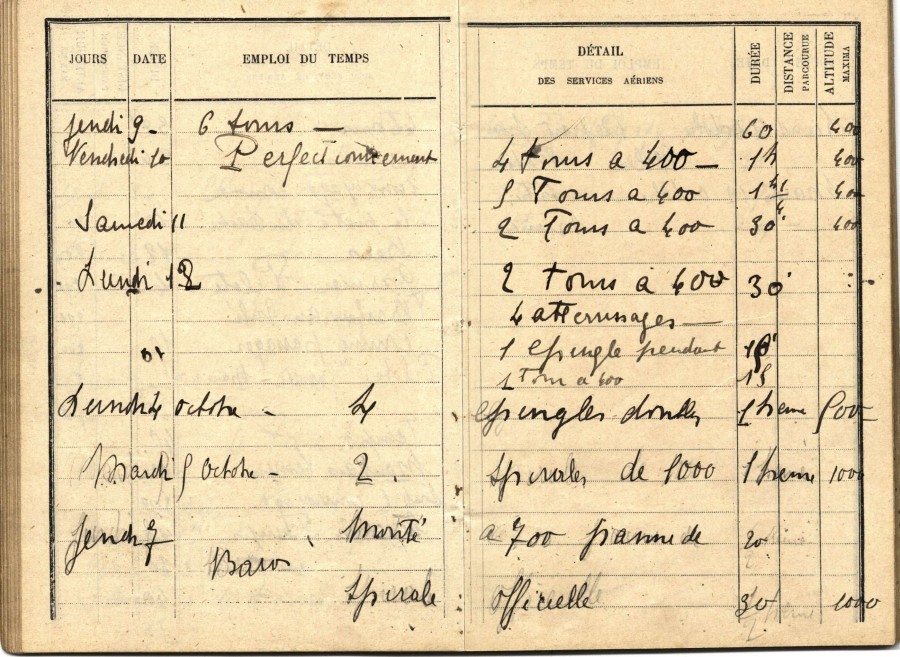 JOURS DATE EMPLOI DU TEMPS DÉTAIL DES SERVICES AÉRIENS DURÉE DISTANCE PARCOURUE ALTITUDE MAXIMA
jeudi 9 - 6 tours — 60 400
Vendredi 10 Perfectionnement 4 Tours a 400 — 1h 400
5 Tours a 400 1h 1/4 400
Samedi 11 2 Tours a 400 30' 400
Lundi 13 2 Tours à 400 30'
4 atterrissages —
1 épingle pendant
1 Tour a 400 15
Lundi 4 octobre - 4 épingles doubles 1 heure 500
Mardi 5 Octobre - 2 spirales de 1000 1 heure 1000
Jeudi 7 Monté a 700 panne de 20
Baro
spirale officielle 30 1000